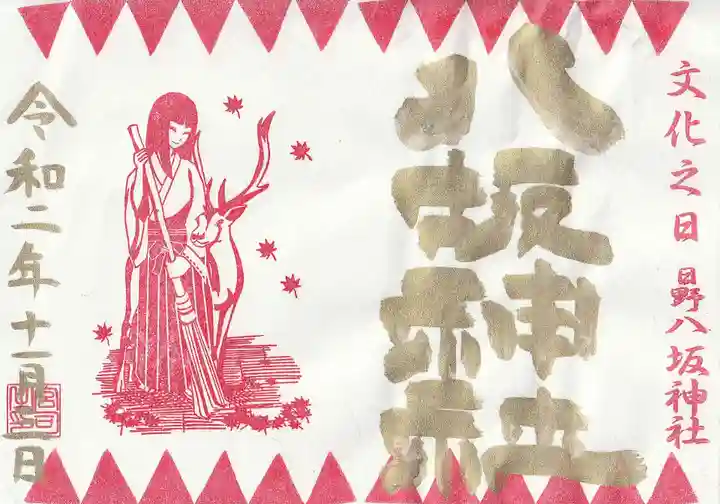 文化之日 日野八坂神社
八坂神社
令和二年十一月三日